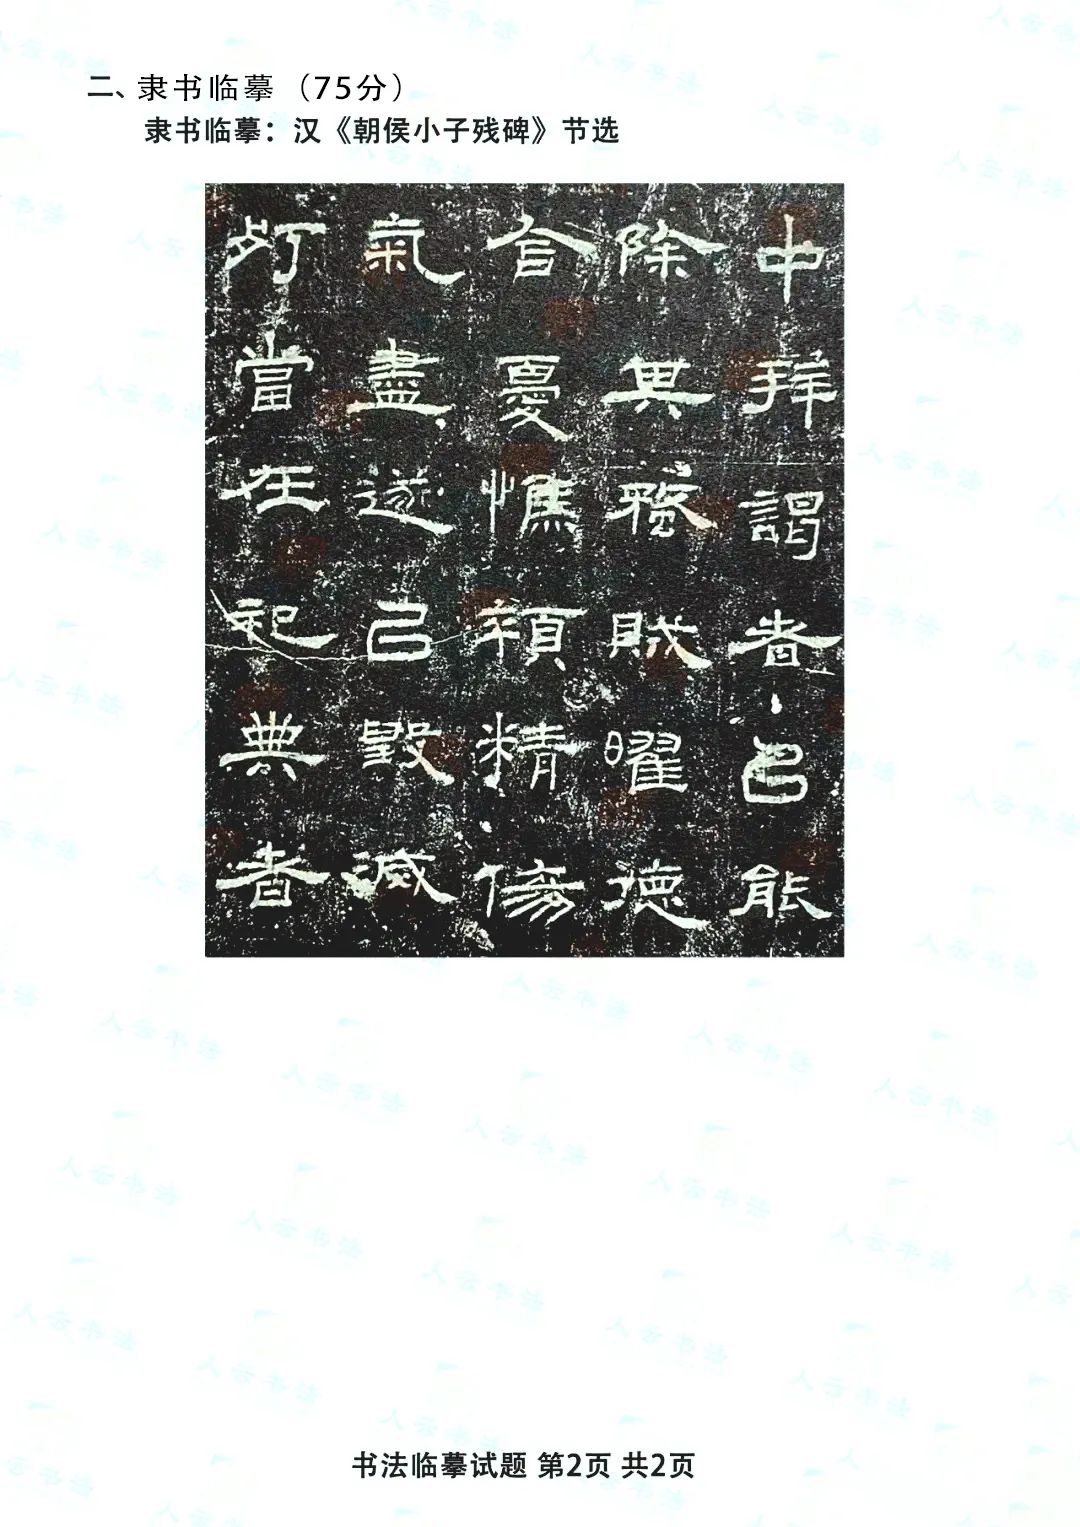 二、隶书临摹（75分）
隶书临摹：汉《朝侯小子残碑》节选
中拜謁者㠯能
除其蝥賊曜德
含憂憔顇精傷
氣盡遂㠯毀滅
列當在祀典者
书法临摹试题 第2页 共2页
人云书法